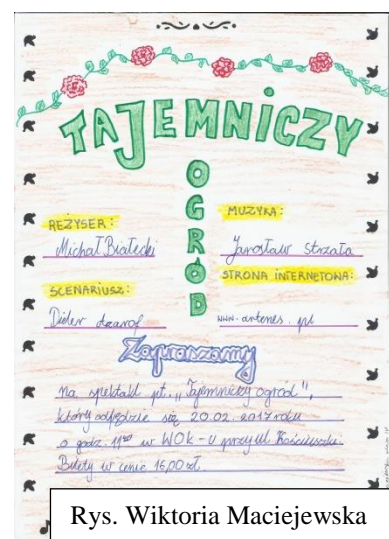 TAJEMNICZY
OGRÓD
REŻYSER:
Michał Białecki
SCENARIUSZ:
MUZYKA:
Jarosław Strzała
STRONA INTERNETOWA:
www.artenes.pl
Zapraszamy
na spektakl pt. „Tajemniczy ogród",
który odbędzie się 20.02.2017 roku
o godz. 11⁰⁰ w WOK-u przy ul. Kościuszki.
Bilety w cenie 16,00 zł.
Rys. Wiktoria Maciejewska